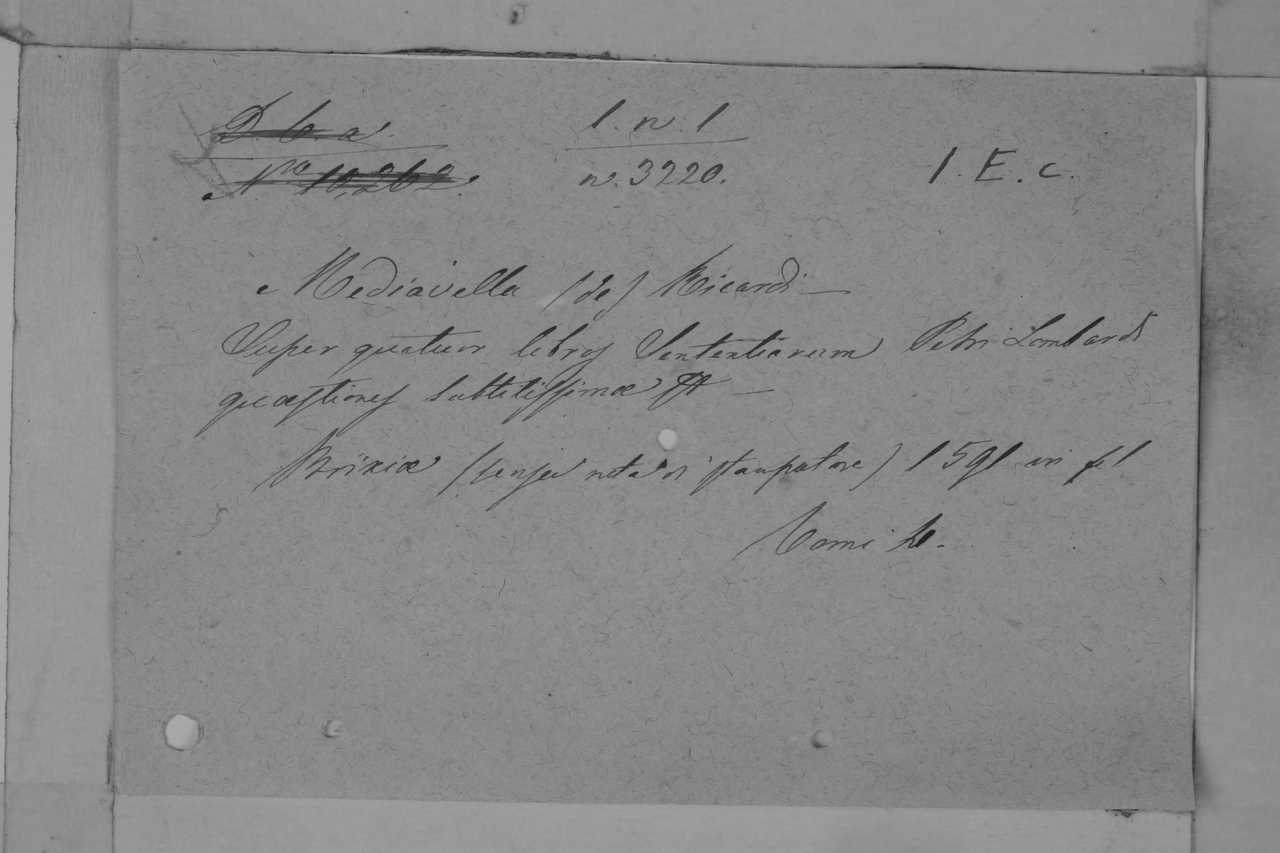 D. b. a. 1. n. 1
Nro 10,262. n. 3220. 1. E. c.
Mediavella (de) Ricardi —
Super quatuor libros Sententiarum Petri Lombardi
quæstiones subtilissimæ —
Brixiæ (senza nota di stampatore) 1591 in fol
Tomi